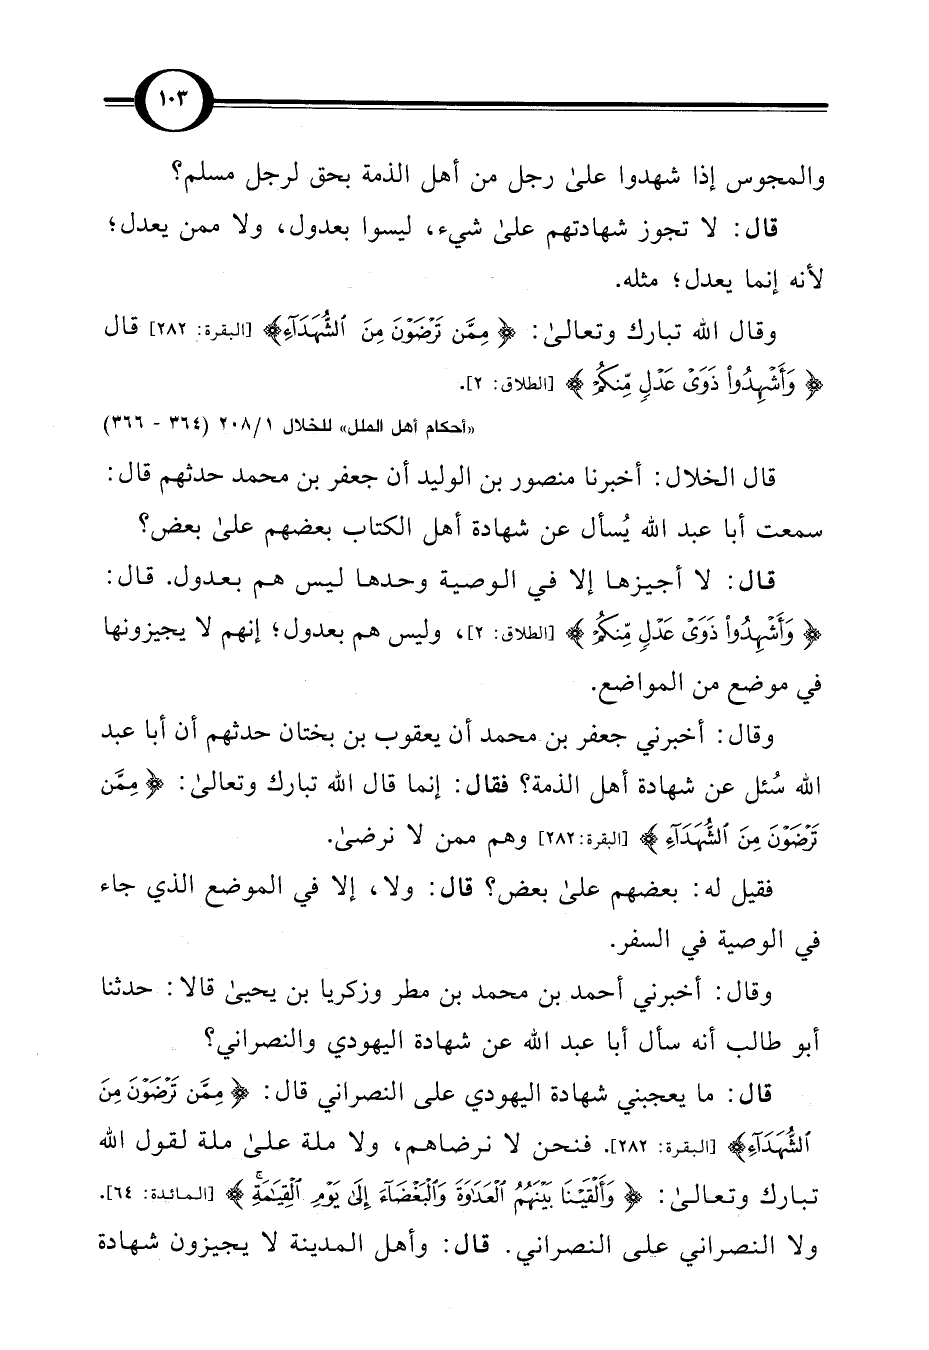 ١٠٣
والمجوس إذا شهدوا علىٰ رجل من أهل الذمة بحق لرجل مسلم؟
قال: لا تجوز شهادتهم علىٰ شيء، ليسوا بعدول، ولا ممن يعدل؛
لأنه إنما يعدل؛ مثله.
وقال الله تبارك وتعالىٰ: ﴿مِمَّن تَرْضَوْنَ مِنَ ٱلشُّهَدَآءِ﴾ [البقرة: ٢٨٢] قال
﴿وَأَشْهِدُوا۟ ذَوَىْ عَدْلٍ مِّنكُمْ﴾ [الطلاق: ٢].
«أحكام أهل الملل» للخلال ٢٠٨/١ (٣٦٤ - ٣٦٦)
قال الخلال: أخبرنا منصور بن الوليد أن جعفر بن محمد حدثهم قال:
سمعت أبا عبد الله يُسأل عن شهادة أهل الكتاب بعضهم علىٰ بعض؟
قال: لا أجيزها إلا في الوصية وحدها ليس هم بعدول. قال:
﴿وَأَشْهِدُوا۟ ذَوَىْ عَدْلٍ مِّنكُمْ﴾ [الطلاق: ٢]، وليس هم بعدول؛ إنهم لا يجيزونها
في موضع من المواضع.
وقال: أخبرني جعفر بن محمد أن يعقوب بن بختان حدثهم أن أبا عبد
الله سُئل عن شهادة أهل الذمة؟ فقال: إنما قال الله تبارك وتعالىٰ: ﴿مِمَّن
تَرْضَوْنَ مِنَ ٱلشُّهَدَآءِ﴾ [البقرة: ٢٨٢] وهم ممن لا نرضىٰ.
فقيل له: بعضهم علىٰ بعض؟ قال: ولا، إلا في الموضع الذي جاء
في الوصية في السفر.
وقال: أخبرني أحمد بن محمد بن مطر وزكريا بن يحيىٰ قالا: حدثنا
أبو طالب أنه سأل أبا عبد الله عن شهادة اليهودي والنصراني؟
قال: ما يعجبني شهادة اليهودي على النصراني قال: ﴿مِمَّن تَرْضَوْنَ مِنَ
ٱلشُّهَدَآءِ﴾ [البقرة: ٢٨٢]. فنحن لا نرضاهم، ولا ملة علىٰ ملة لقول الله
تبارك وتعالىٰ: ﴿وَأَلْقَيْنَا بَيْنَهُمُ ٱلْعَدَٰوَةَ وَٱلْبَغْضَآءَ إِلَىٰ يَوْمِ ٱلْقِيَٰمَةِ﴾ [المائدة: ٦٤].
ولا النصراني على النصراني. قال: وأهل المدينة لا يجيزون شهادة